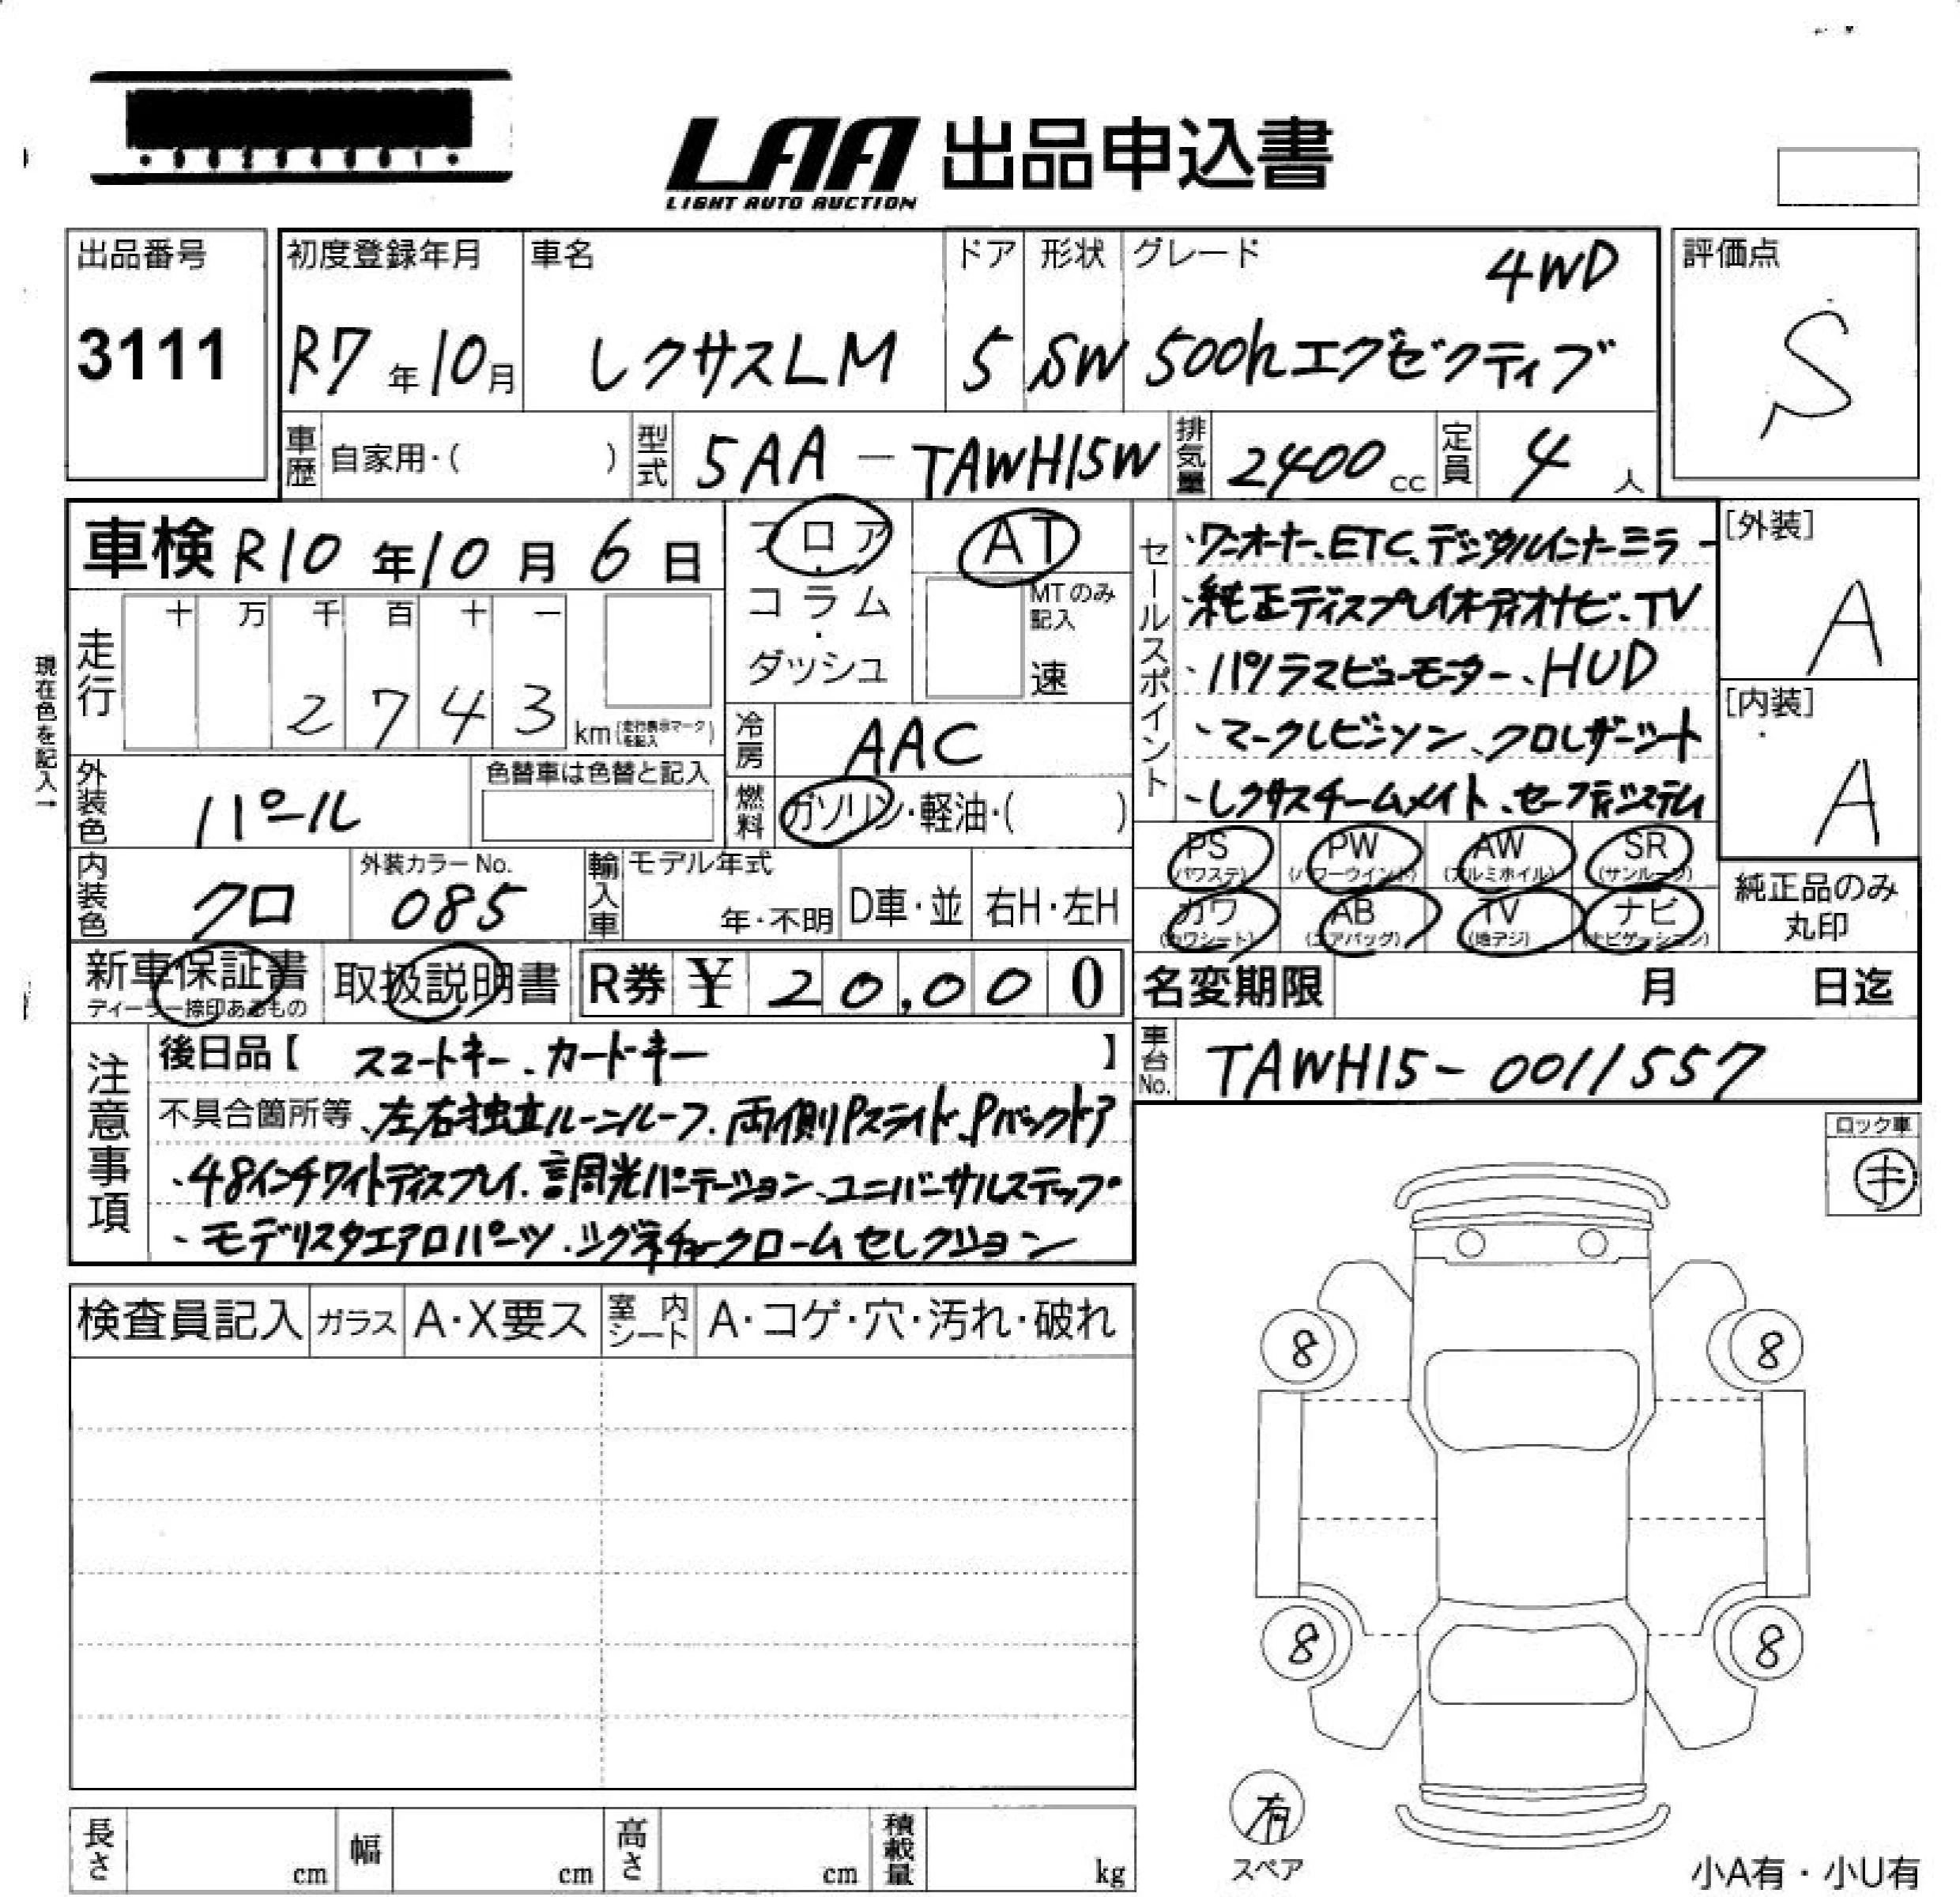 LAA 出品申込書
LIGHT AUTO AUCTION
出品番号
3111
初度登録年月
R7年10月
車名
レクサスLM
ドア
5
形状
SW
グレード
4WD
500hエグゼクティブ
評価点
S
車歴 自家用・( )
型式 5AA-TAWH15W
排気量 2400cc
定員 4人
車検 R10年10月6日
フロア
コラム
・
ダッシュ
AT
MTのみ
記入
速
走行
十 万 千 百 十 一
2 7 4 3 km(走行表示マークを記入)
現在色を記入→
冷房 AAC
燃料 ガソリン・軽油・( )
外装色 パール
色替車は色替と記入
内装色 クロ
外装カラーNo.
085
輸入車
モデル年式
年・不明
D車・並
右H・左H
セールスポイント
・ワンオーナー、ETC、デジタルインナーミラー
・純正ディスプレイオーディオナビ、TV
・パノラマビューモニター、HUD
・マークレビンソン、クロレザーシート
・レクサスチームメイト、セーフティシステム
[外装]
A
[内装]
A
PS (パワステ)
PW (パワーウインド)
AW (アルミホイル)
SR (サンルーフ)
カワ (カワシート)
AB (エアバッグ)
TV (地デジ)
ナビ (ナビゲーション)
純正品のみ
丸印
新車保証書
ディーラー捺印あるもの
取扱説明書
R券 ¥ 20,000
名変期限 月 日迄
車台No. TAWH15-0011557
注意事項
後日品【 スマートキー、カードキー 】
不具合箇所等、左右独立ムーンルーフ、両側Pスライド、Pバックドア
・48インチワイドディスプレイ、調光パーテーション、ユニバーサルステップ
・モデリスタエアロパーツ、シグネチャークロームセレクション
ロック車
キ
検査員記入
ガラス
A・X要ス
室内シート
A・コゲ・穴・汚れ・破れ
8
8
8
8
有
スペア
長さ cm
幅 cm
高さ cm
積載量 kg
小A有・小U有